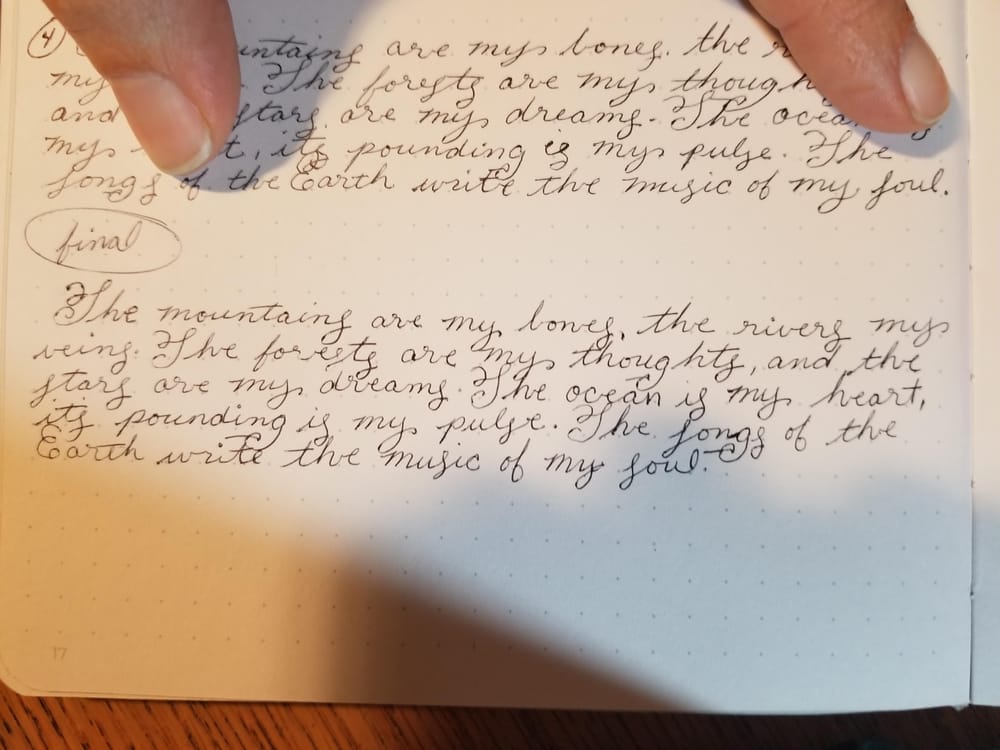 4 are my bones. the
my The forests are my
and stars are my dreams. The
my its pounding is my pulse. The
songs of the Earth write the music of my soul.
final
The mountains are my bones, the rivers my
veins. The forests are my thoughts, and the
stars are my dreams. The ocean is my heart,
its pounding is my pulse. The songs of the
Earth write the music of my soul.
17